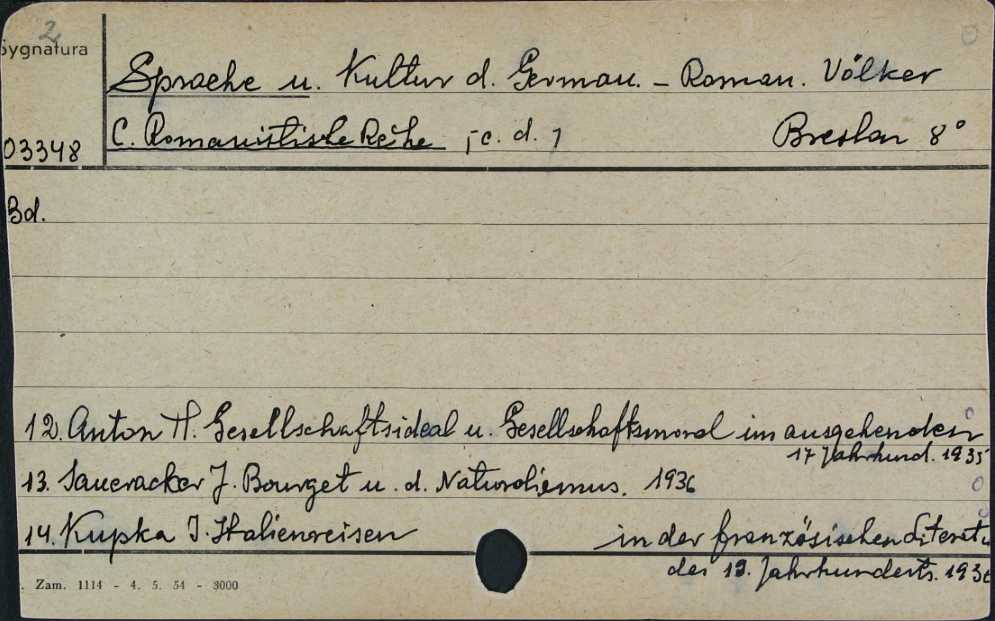 2
Sygnatura
Sprache u. Kultur d. German. - Roman. Völker
03348
C. Romanistische Reihe ; c. d. 1
Breslau 8°
Bd.
12. Anton H. Gesellschaftsideal u. Gesellschaftsmoral im ausgehenden
17 Jahrhund. 1935
13. Saueracker J. Bourget u. d. Naturalismus. 1936
14. Kupka I. Italienreisen in der französischen Literat
des 19. Jahrhunderts. 193
. Zam. 1114 - 4. 5. 54 - 3000